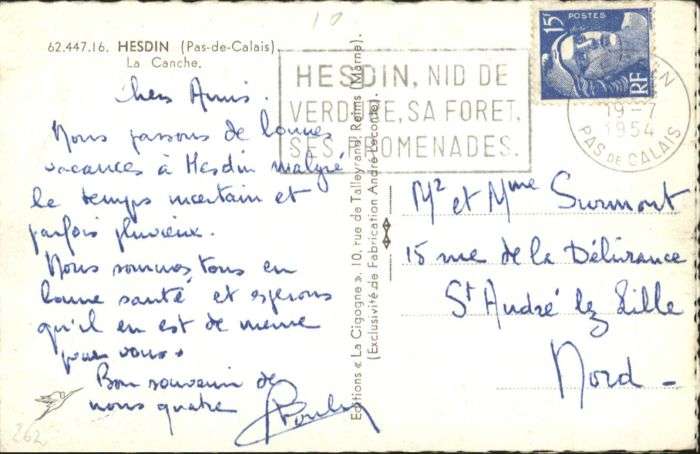 10
62.447.16. HESDIN (Pas-de-Calais)
La Canche.
Chers Amis.
Nous passons de bonnes
vacances à Hesdin malgré
le temps incertain et
parfois pluvieux.
Nous sommes tous en
bonne santé et espérons
qu'il en est de même
pour vous.
Bon souvenir de
nous quatre
262
Editions « La Cigogne », 10, rue de Talleyrand, Reims (Marne).
(Exclusivité de Fabrication André Leconte).
HESDIN, NID DE
VERDURE, SA FORET,
SES PROMENADES.
15F
POSTES
RF
19-7
1954
PAS DE CALAIS
Mr et Mme Surmont
15 rue de la Délivrance
St André lez Lille
Nord